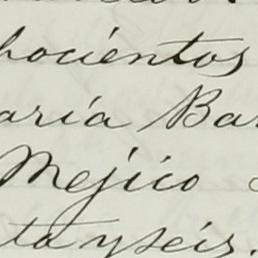 hocientos
aría Ba
Mejico
ta y seis.